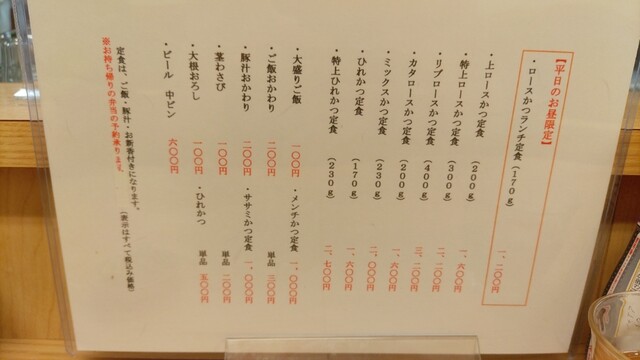 【平日のお昼限定】
・ロースかつランチ定食(170g) 一、二〇〇円
・上ロースかつ定食 (200g) 一、六〇〇円
・特上ロースかつ定食 (300g) 二、二〇〇円
・リブロースかつ定食 (400g) 三、二〇〇円
・カタロースかつ定食 (200g) 一、六〇〇円
・ミックスかつ定食 (230g) 二、〇〇〇円
・ひれかつ定食 (170g) 一、六〇〇円
・特上ひれかつ定食 (230g) 二、七〇〇円
・大盛りご飯 一〇〇円
・ご飯おかわり 二〇〇円
・豚汁おかわり 二〇〇円
・茎わさび 一〇〇円
・大根おろし 一〇〇円
・ビール 中ビン 六〇〇円
・メンチかつ定食 一、〇〇〇円
単品 三〇〇円
・ササミかつ定食 一、〇〇〇円
単品 二〇〇円
・ひれかつ 単品 五〇〇円
定食は、ご飯、豚汁・お新香付きになります。 (表示はすべて税込み価格)
※お持ち帰りの弁当の予約承ります。